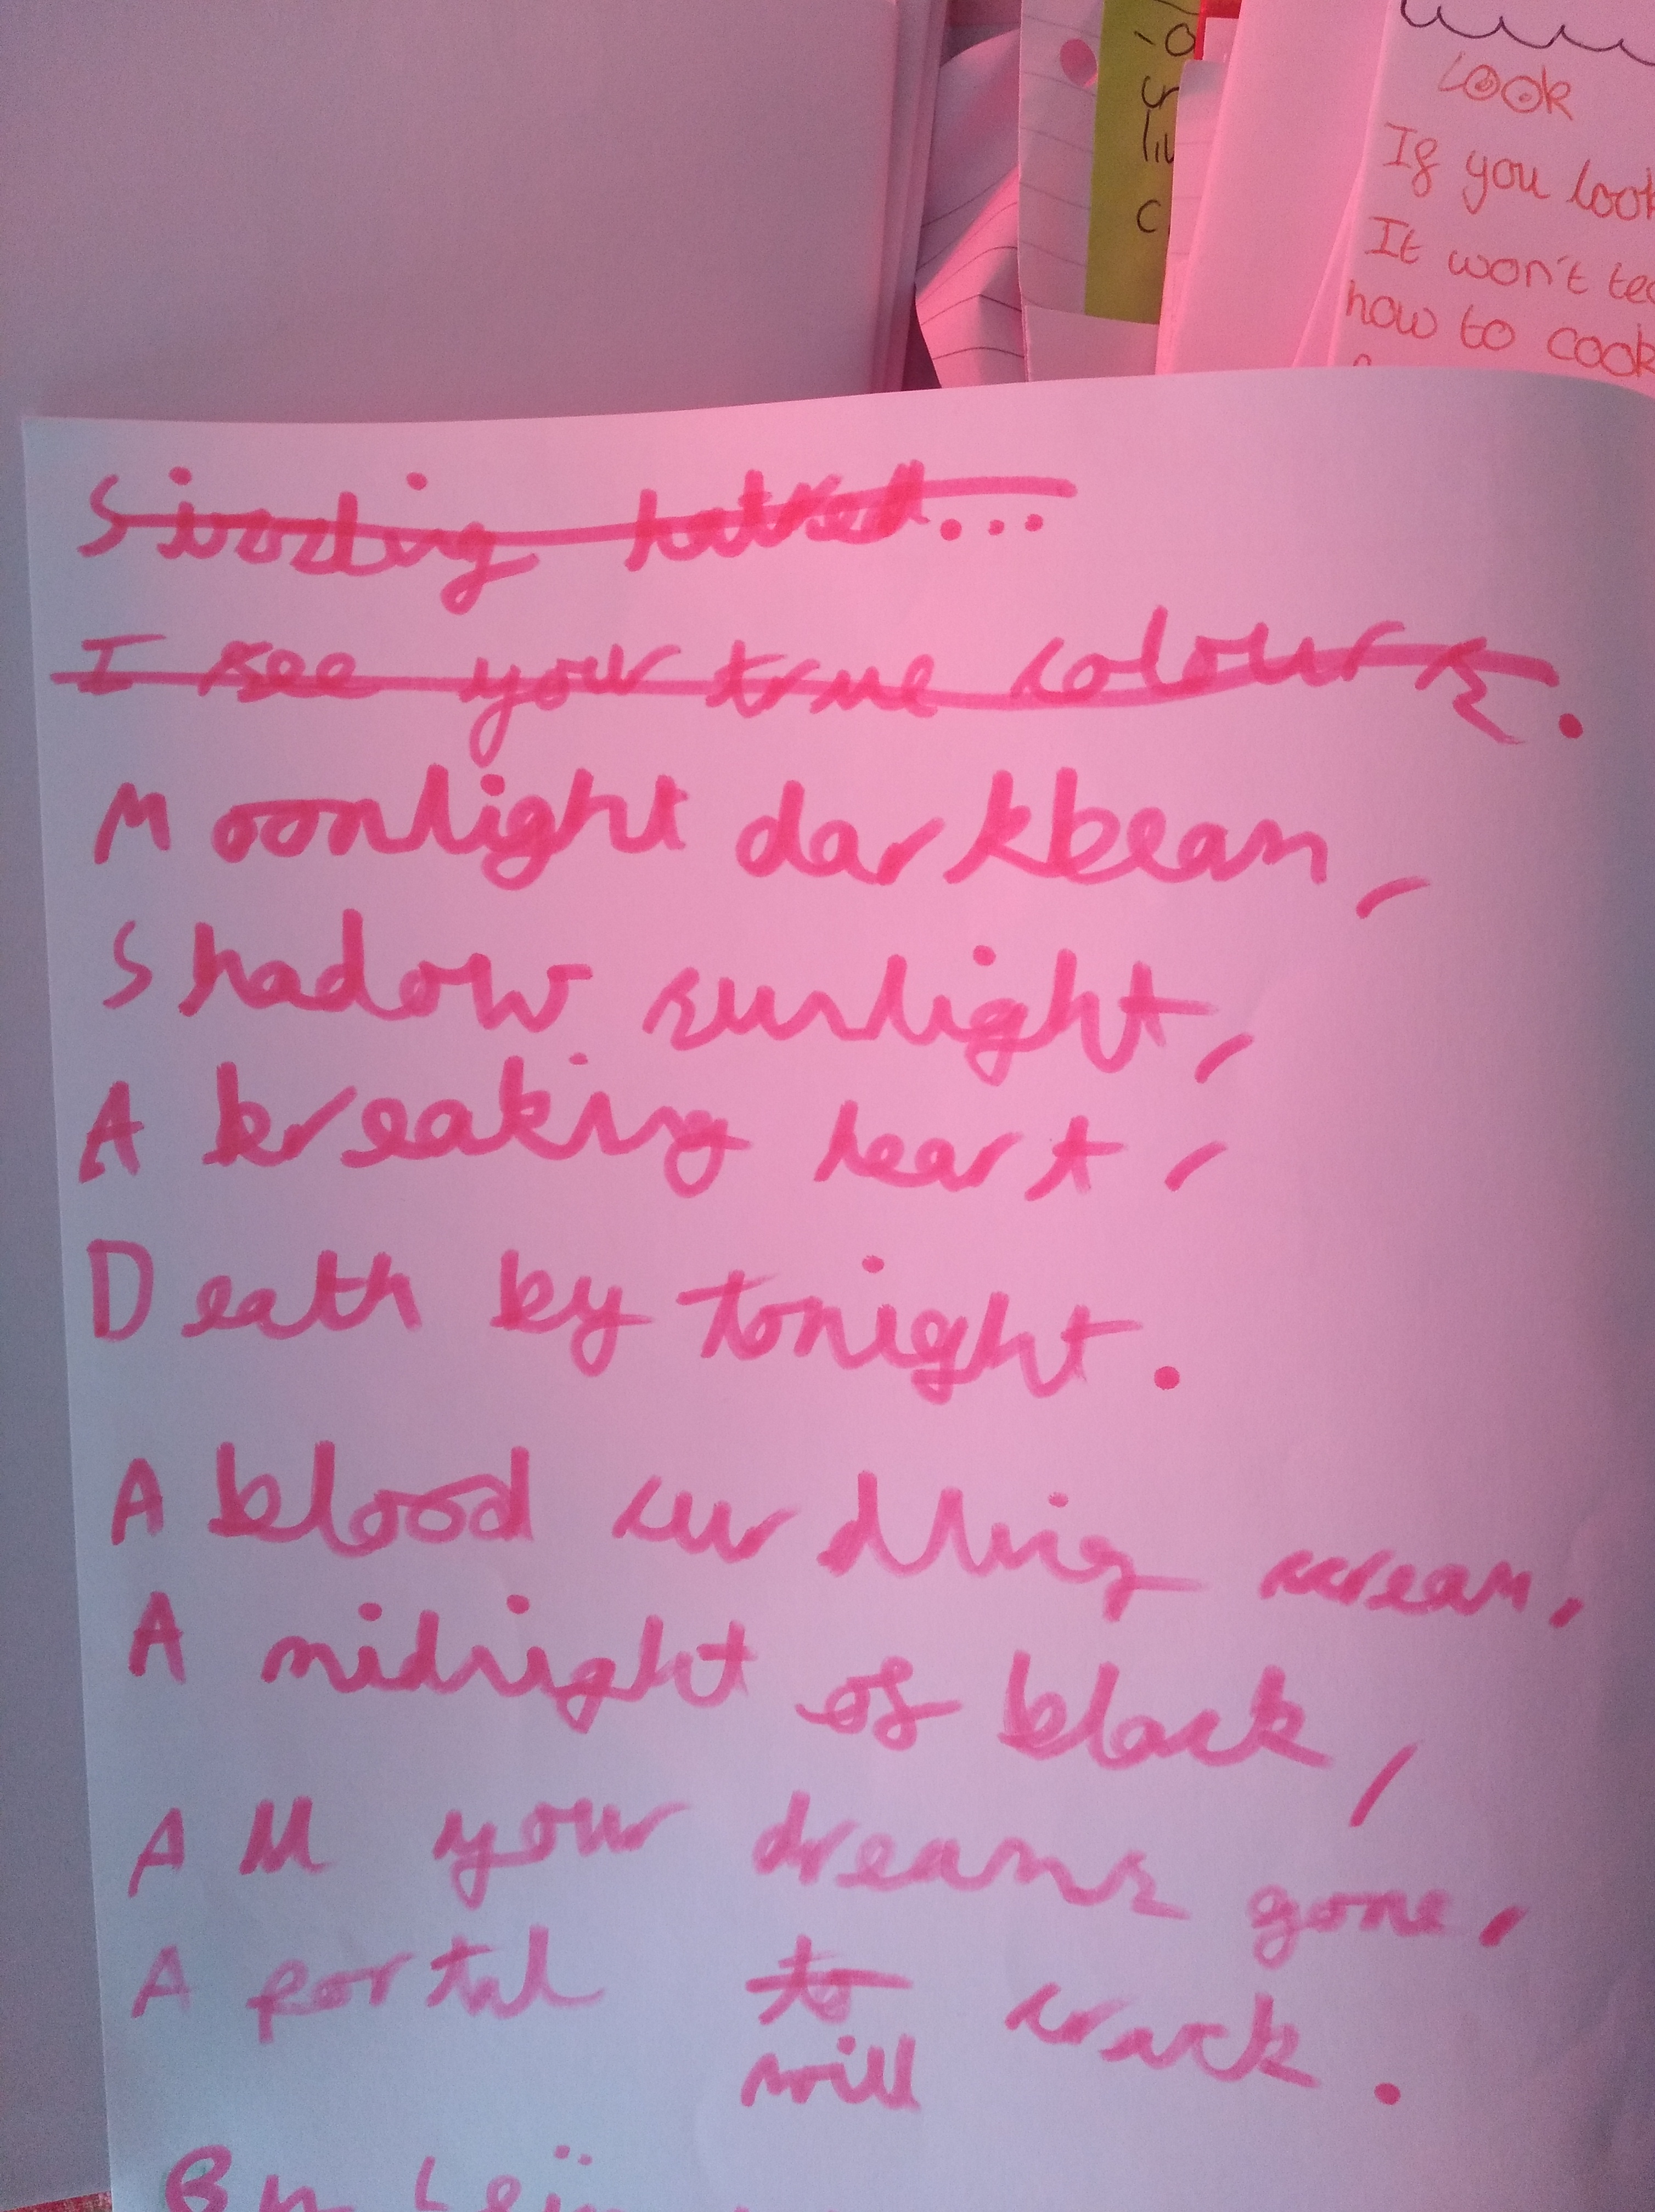 LOOK
If you look
It won't
how to cook
hatred...
I see your true colours.
Moonlight darkbeam,
Shadow sunlight,
A breaking heart,
Death by tonight.
A blood curdling scream,
A midnight of black,
All your dreams gone,
A portal to crack.
will
By